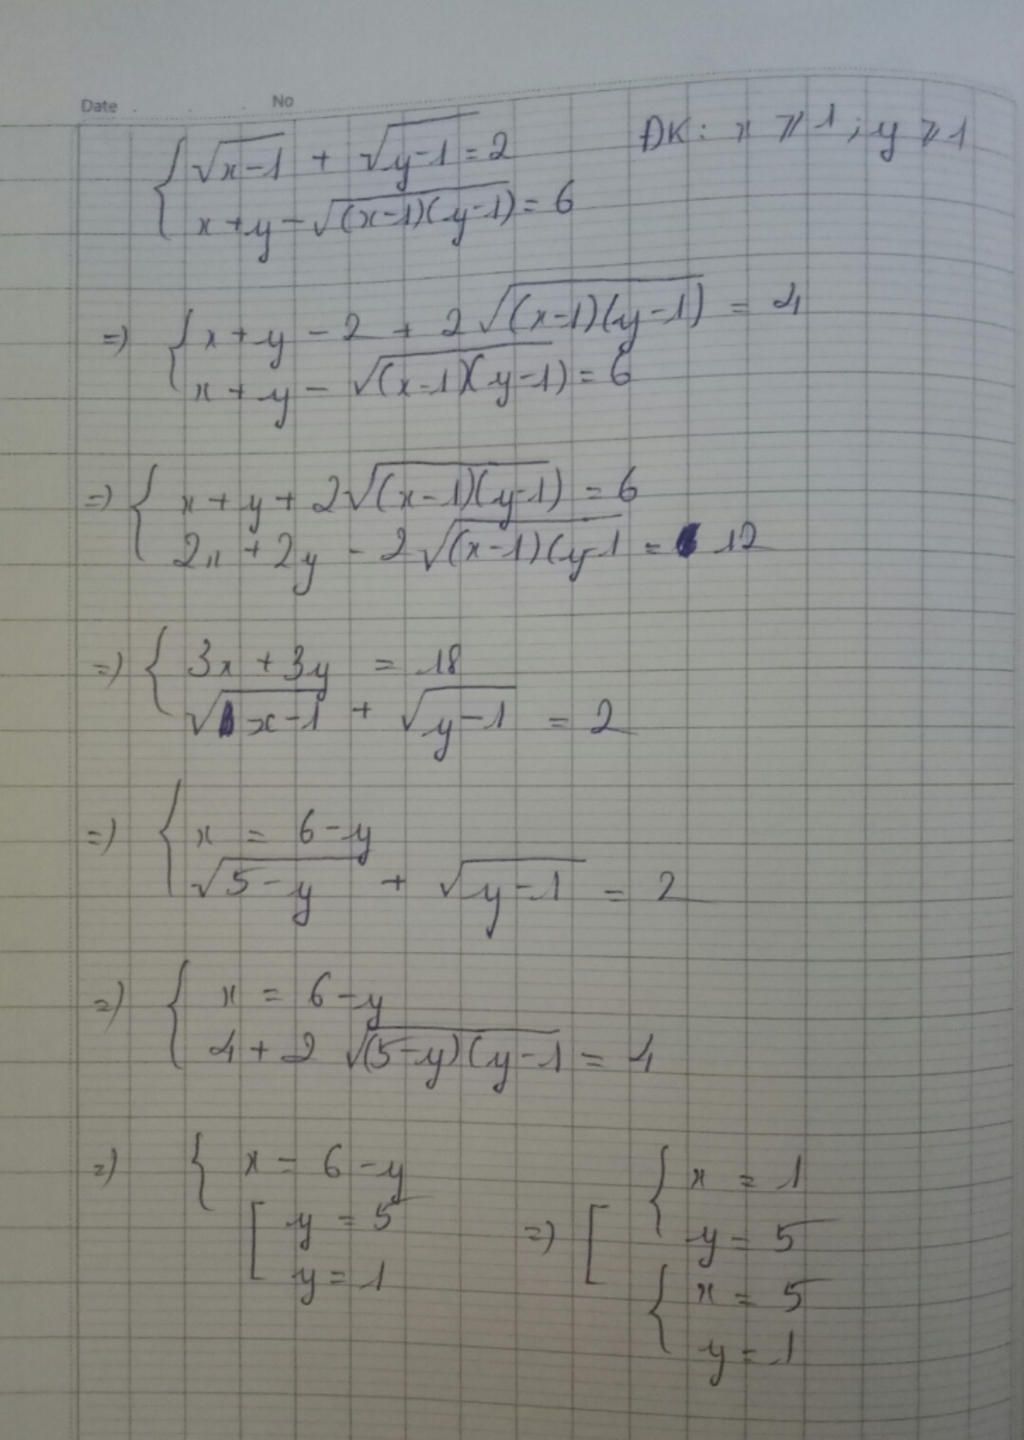 Date No
{ √(x-1) + √(y-1) = 2 ĐK: x ⩾ 1 ; y ⩾ 1
x + y - √((x-1)(y-1)) = 6
=> { x + y - 2 + 2√((x-1)(y-1)) = 4
x + y - √((x-1)(y-1)) = 6
=> { x + y + 2√((x-1)(y-1)) = 6
2x + 2y - 2√((x-1)(y-1 = 12
=> { 3x + 3y = 18
√(x-1) + √(y-1) = 2
=> { x = 6 - y
√(5-y) + √(y-1) = 2
=> { x = 6 - y
4 + 2 √((5-y)(y-1 = 4
=> { x = 6 - y
[ y = 5
y = 1
=> [ { x = 1
y = 5
{ x = 5
y = 1